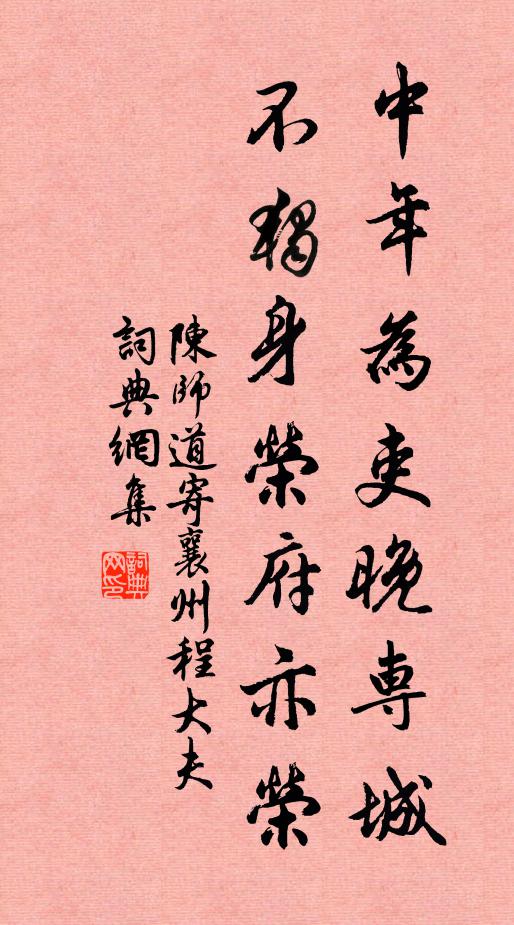 中年為吏晚專城
不獨身榮府亦榮
陳師道寄襄州程大夫
詞典網集
詞典网印